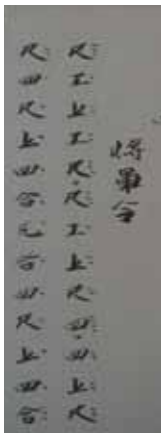 将軍令
尺工上工尺尺工上尺四四上尺
尺四尺上四合合四尺上四合